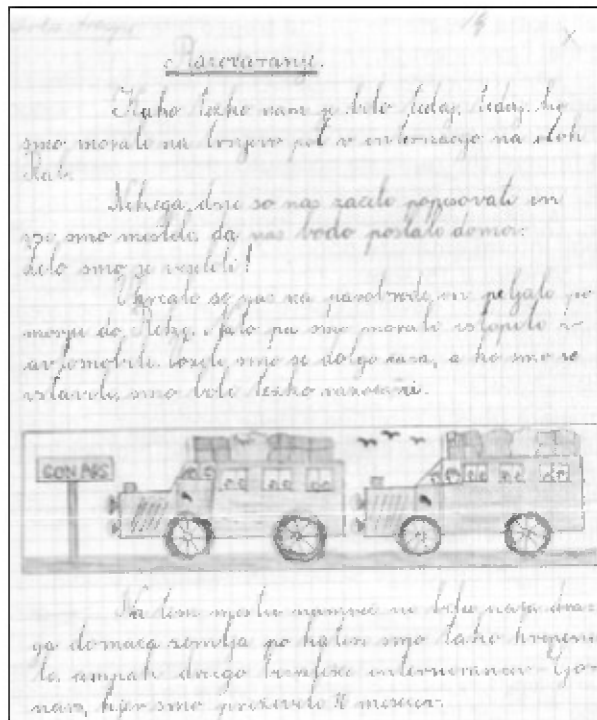 14
Razočaranje.
Kako težko nam je bilo tedaj, tedaj, ko
smo morali na križevo pot v internacijo na otok
Rab.
Nekega dne so nas začeli popisovati in
vsi smo mislili, da nas bodo poslali domov.
Zelo smo se veselili!
Vkrcali so nas na parobrode in peljali po
morju do Reke. Nato pa smo morali vstopiti v
avtomobile. Vozili smo se dolgo časa, a ko smo se
ustavili, smo bili težko razočarani.
GONARS
Na tem mestu namreč ni bila naša dra-
ga domača zemlja po kateri smo tako hrepene-
li, ampak drugo bivališče internirancev Go-
nars, kjer smo preživeli mesecev.